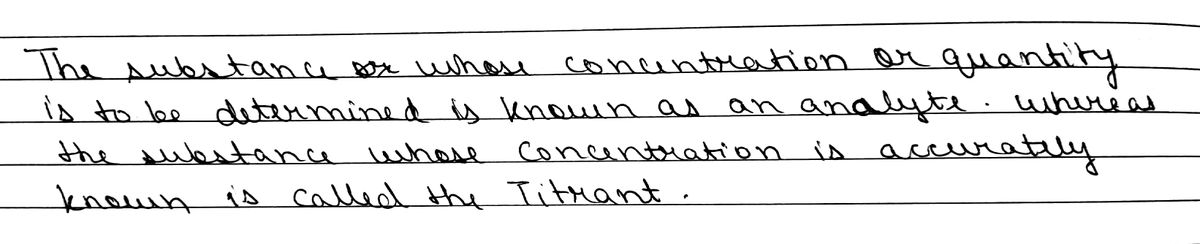 The substance or whose concentration or quantity
is to be determined is known as an analyte. whereas
the substance whose concentration is accurately
known is called the Titrant.